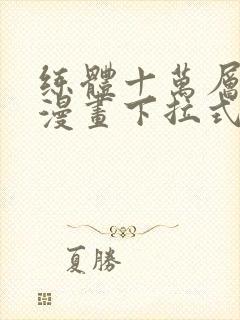 练體十萬層
漫畫下拉式
夏勝